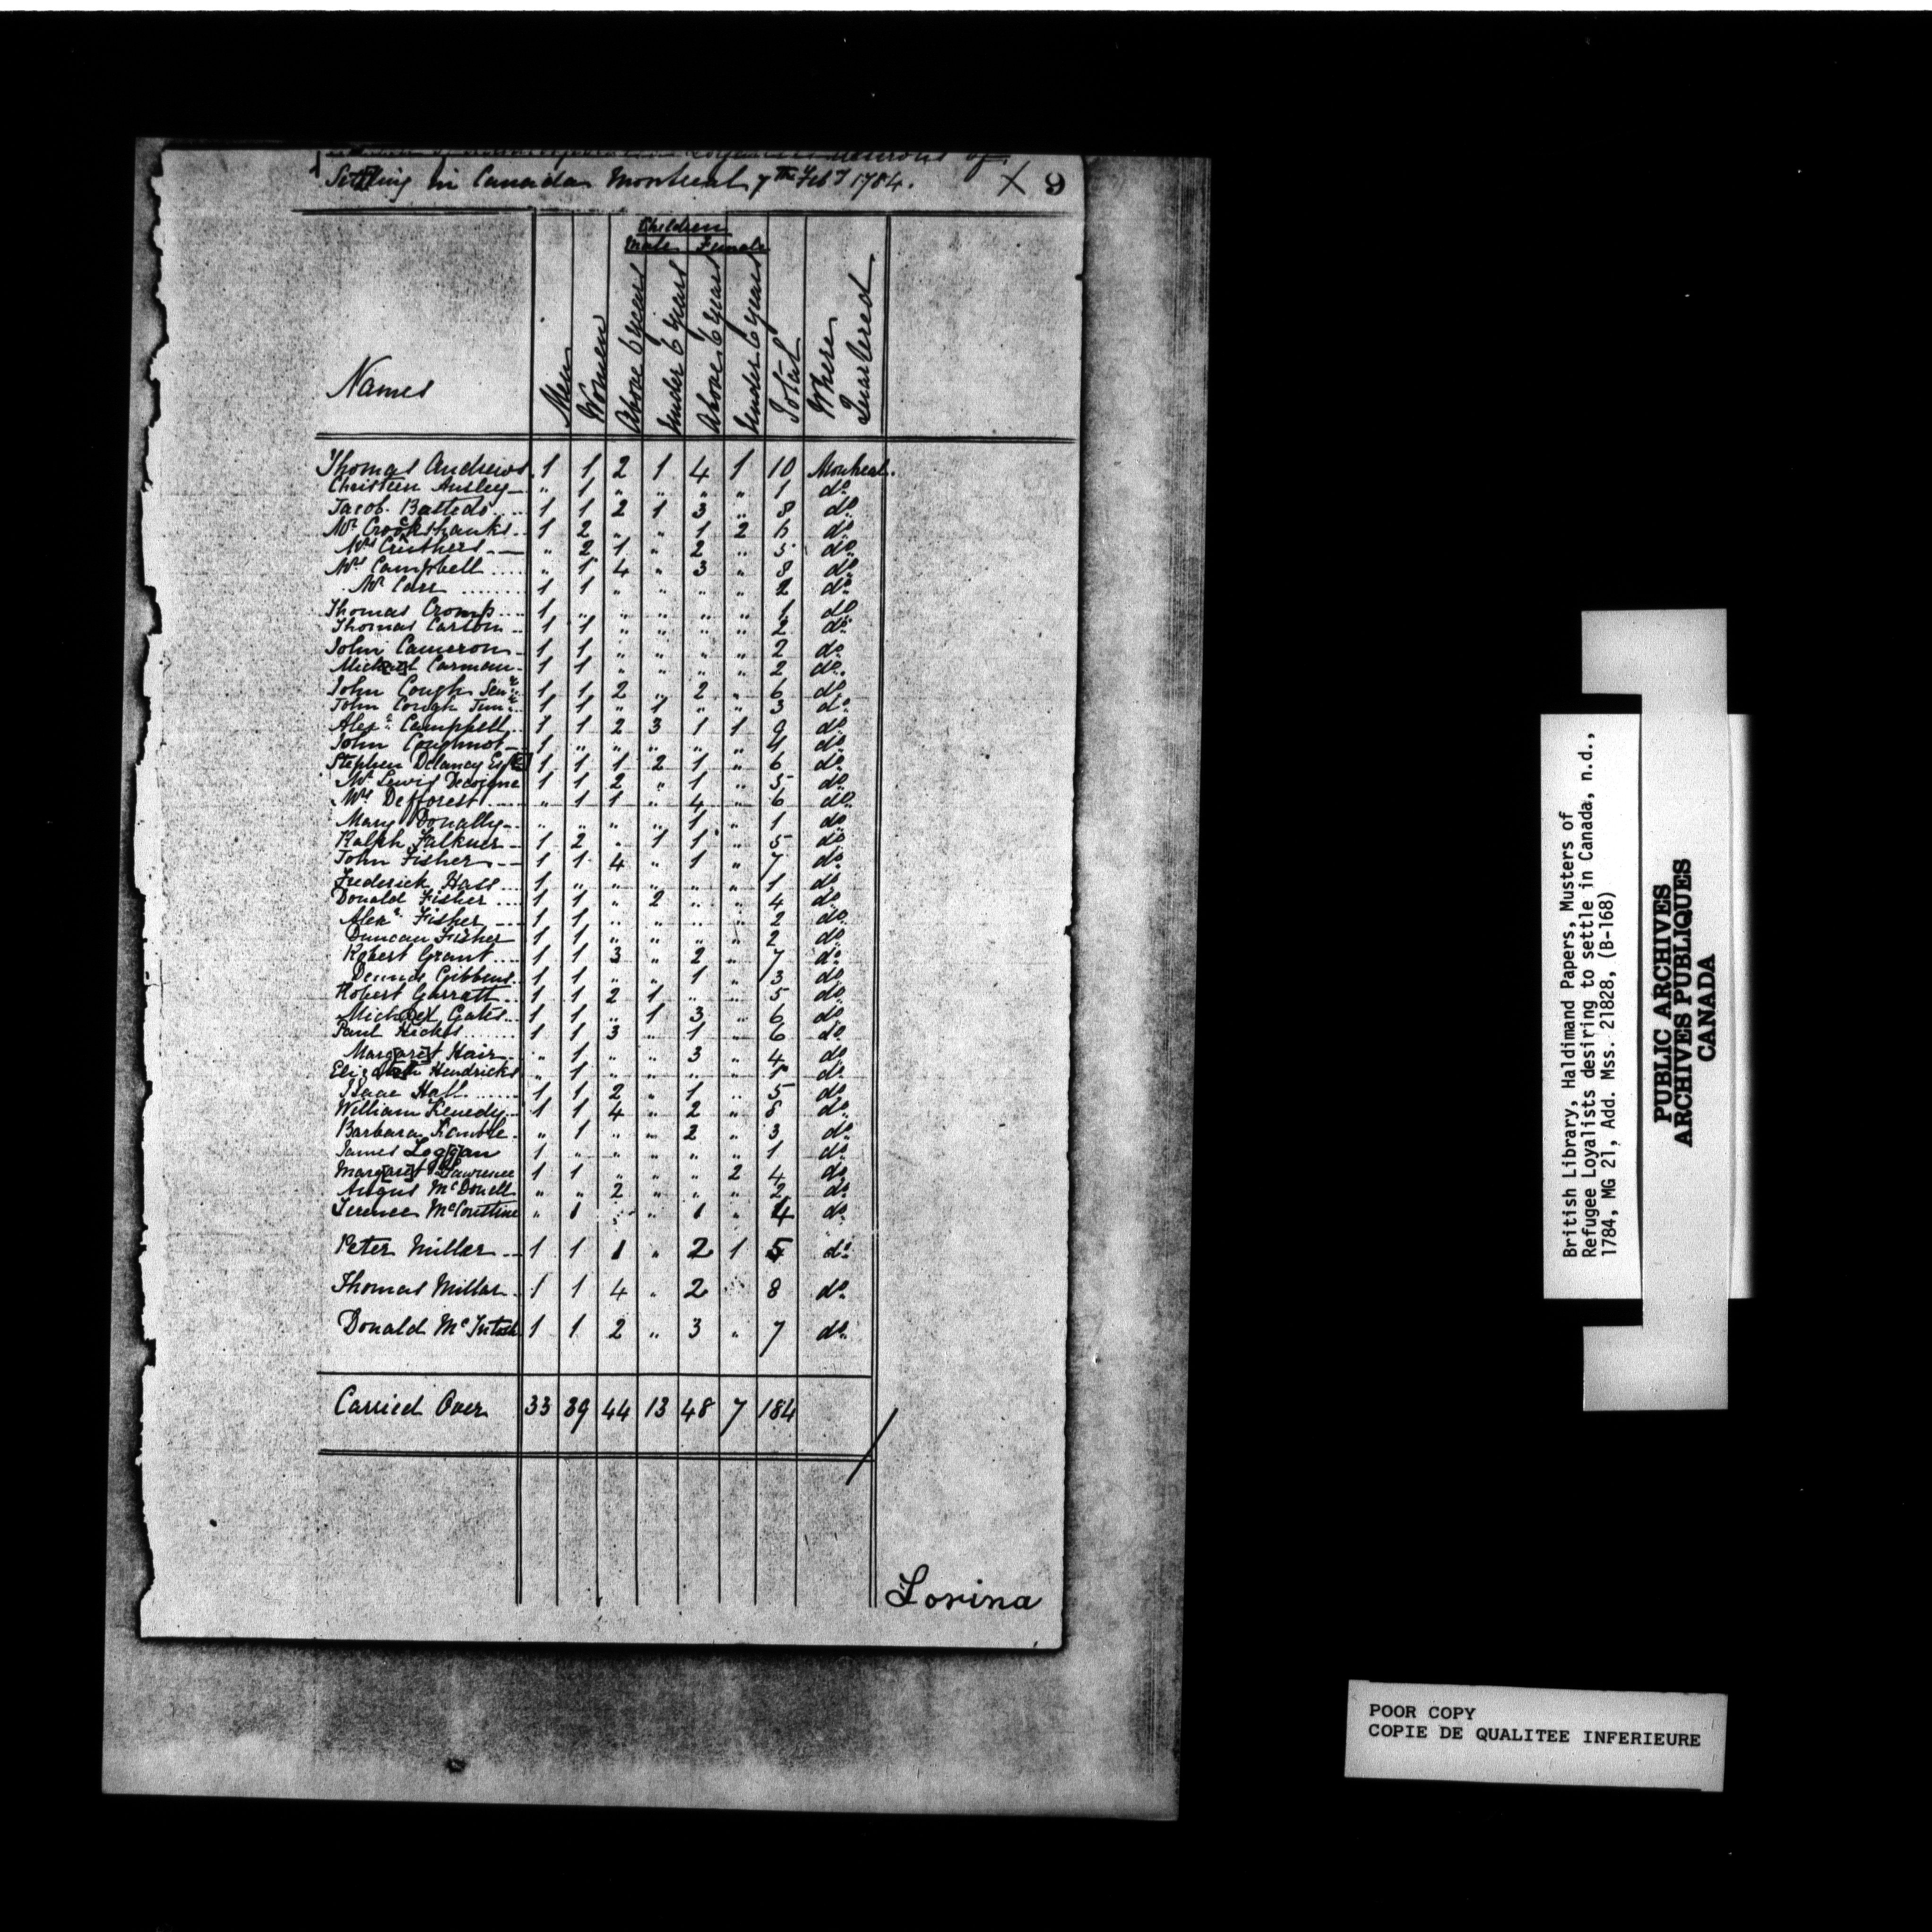 Settling in Canada Montreal 7th Feby 1784. X 9
Children
Male Female
Names Men Women Above 6 years Under 6 years Above 6 years Under 6 years Total Where Quartered
Thomas Andrews 1 1 2 1 4 1 10 Montreal.
Christeen Ansley " 1 " " " " 1 do
Jacob Basteds 1 1 2 1 3 " 8 do
Mr Crookshanks 1 2 " " 1 2 6 do
Mrs Cruthers " 2 1 " 2 " 5 do
Mrs Campbell " 1 4 " 3 " 8 do
Mr Carr 1 1 " " " " 2 do
Thomas Cromp 1 " " " " " 1 do
Thomas Carson 1 1 " " " " 2 do
John Cameron 1 1 " " " " 2 do
Michael Carman 1 1 " " " " 2 do
John Cough Senr 1 1 2 " 2 " 6 do
John Cough Junr 1 1 " 1 " " 3 do
Alexr Campbell 1 1 2 3 1 1 9 do
John Coughnot 1 " " " " " 1 do
Stephen Delancy Esqr 1 1 1 2 1 " 6 do
Mr Lewis Decoigne 1 1 2 " 1 " 5 do
Mrs Defforest " 1 1 " 4 " 6 do
Mary Donally " " " " 1 " 1 do
Ralph Falkner 1 2 " 1 1 " 5 do
John Fisher 1 1 4 " 1 " 7 do
Frederick Hass 1 " " " " " 1 do
Donald Fisher 1 1 " 2 " " 4 do
Alexr Fisher 1 1 " " " " 2 do
Duncan Fisher 1 1 " " " " 2 do
Robert Grant 1 1 3 " 2 " 7 do
Dennis Gibbens 1 1 " " 1 " 3 do
Robert Garratt 1 1 2 1 " " 5 do
Michael Gates 1 1 " 1 3 " 6 do
Paul Hicks 1 1 3 " 1 " 6 do
Marg[are]t Hair " 1 " " 3 " 4 do
Elizabeth Hendricks " 1 " " " " 1 do
Isaac Hall 1 1 2 " 1 " 5 do
William Kenedy 1 1 4 " 2 " 8 do
Barbara Kamble " 1 " " 2 " 3 do
James Loggan 1 " " " " " 1 do
Marg[are]t Lawrence 1 1 " " " 2 4 do
Angus McDonell " " 2 " " " 2 do
Terence McCoustine " 1 " 1 " 4 do
Peter Miller 1 1 1 " 2 1 5 do
Thomas Millar 1 1 4 " 2 " 8 do
Donald McIntosh 1 1 2 " 3 " 7 do
Carried Over 33 39 44 13 48 7 184
Lorina
British Library, Haldimand Papers, Musters of
Refugee Loyalists desiring to settle in Canada, n.d.,
1784, MG 21, Add. Mss. 21828, (B-168)
PUBLIC ARCHIVES
ARCHIVES PUBLIQUES
CANADA
POOR COPY
COPIE DE QUALITEE INFERIEURE